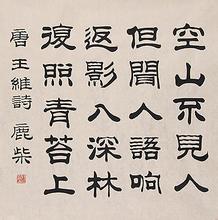 空山不見人
但聞人語响
返影入深林
復照青苔上
唐王維詩 鹿柴